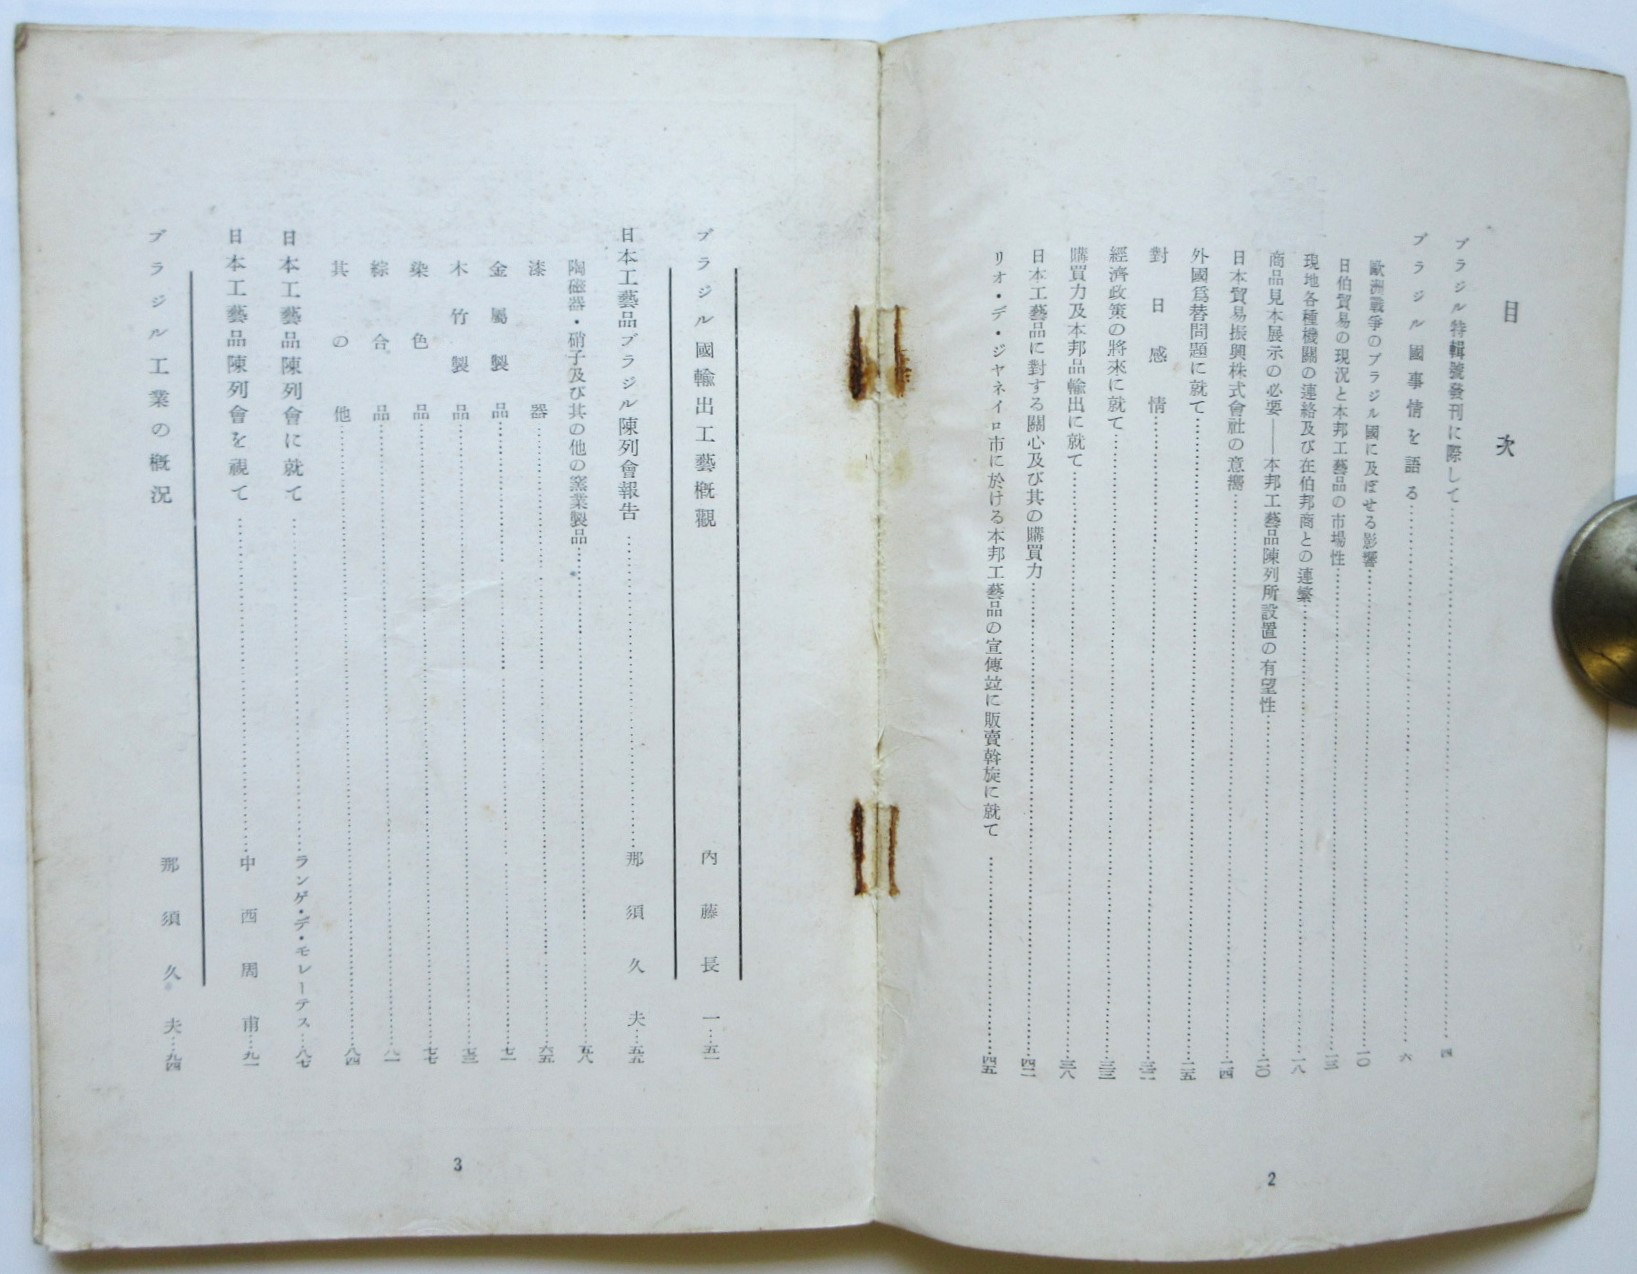 目次
ブラジル特輯號發刊に際して……四
ブラジル國事情を語る……六
歐洲戰爭のブラジル國に及ぼせる影響……一〇
日伯貿易の現況と本邦工藝品の市場性……一三
現地各種機關の連絡及び在伯邦商との連繫……一八
商品見本展示の必要――本邦工藝品陳列所設置の有望性……二〇
日本貿易振興株式會社の意嚮……二四
外國爲替問題に就て……二五
對日感情……三二
經濟政策の將來に就て……三三
購買力及本邦品輸出に就て……三八
日本工藝品に對する關心及び其の購買力……四二
リオ・デ・ジヤネイロ市に於ける本邦工藝品の宣傳並に販賣斡旋に就て……四五
2
ブラジル國輸出工藝槪觀 內藤長一……五一
日本工藝品ブラジル陳列會報告……那須久夫……五五
陶磁器・硝子及び其の他の窯業製品……五八
漆器……六五
金屬製品……七一
木竹製品……七三
染色品……七七
綜合品……八一
其の他……八四
日本工藝品陳列會に就て……ランゲ・デ・モレーテス……八七
日本工藝品陳列會を視て……中西周甫……九一
ブラジル工業の槪況 那須久夫……九四
3